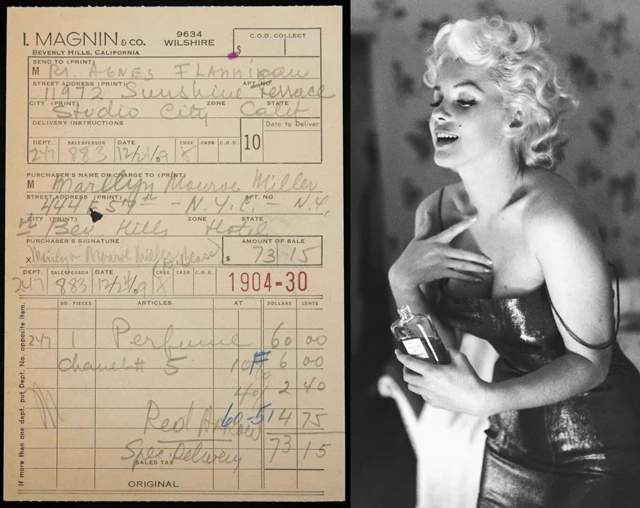 I. MAGNIN & CO.
9634 WILSHIRE
C.O.D. COLLECT
BEVERLY HILLS, CALIFORNIA
$
SEND TO (PRINT)
M Rs AGNES FLAnnigan
STREET ADDRESS (PRINT) APT. NO.
11972 Sunshine Terrace
CITY (PRINT) ZONE STATE
Studio City Calif
DELIVERY INSTRUCTIONS
Date to Deliver
DEPT. SALESPERSON DATE CHGE CASH C.O.D. 10
247 883
PURCHASER'S NAME OR CHARGE TO (PRINT)
M Marilyn Monroe Miller
STREET ADDRESS (PRINT) APT. NO.
444 E 57 - N.Y.C. - N.Y.
CITY (PRINT) ZONE STATE
Bev Hills Hotel
PURCHASER'S SIGNATURE AMOUNT OF SALE
X Marilyn Monroe Miller $ 73 15
DEPT. SALESPERSON DATE CHGE CASH C.O.D.
247 883 1904-30
NO. PIECES ARTICLES AT DOLLARS CENTS
247 1 Perfume 60 00
Chanel # 5 6 00
2 40
Red Arrow 60-51 4 75
Spec. Delivery 73 15
SALES TAX
ORIGINAL
If more than one dept. put Dept. No. opposite item.